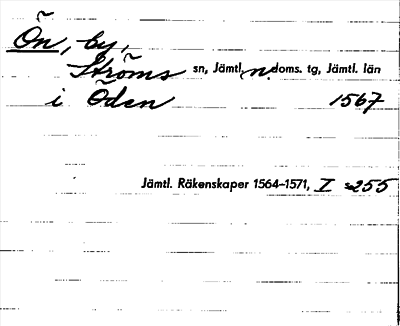 Ön, by,
Ströms sn, Jämtl. n. doms. tg, Jämtl. län
i Öden 1567
Jämtl. Räkenskaper 1564–1571, I s 255